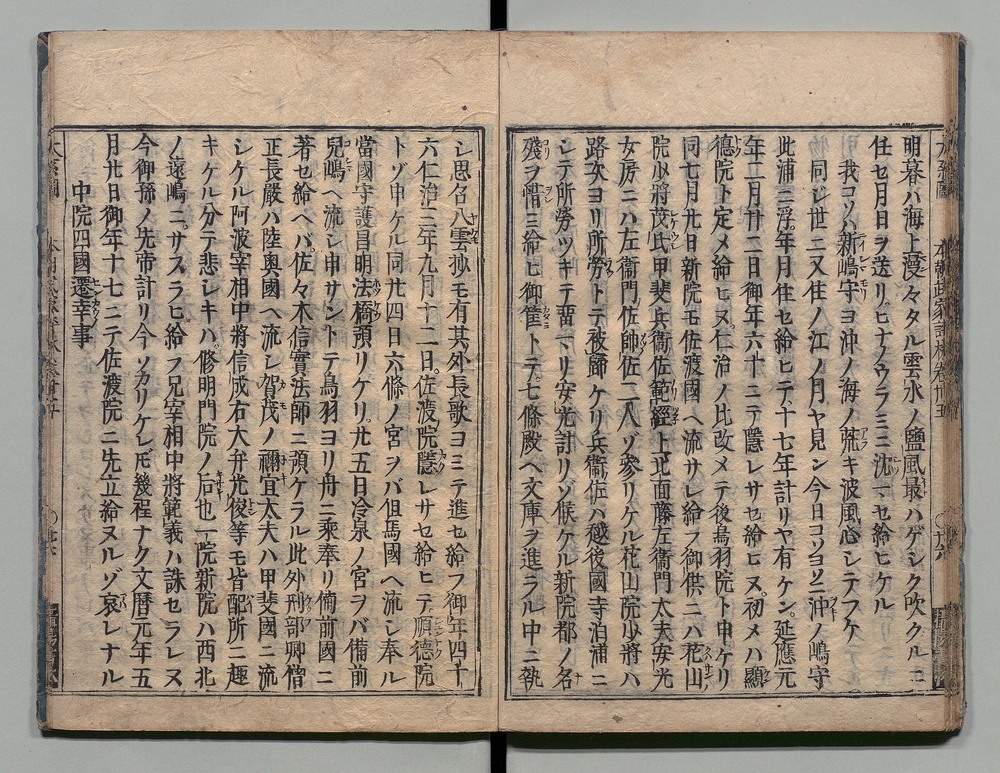 明暮ハ海上漫々タル雲水ノ鹽風最ハゲシク吹クルニ
任セ月日ヲ送リヒナノウラミニ沈マセ給ヒケル
我コソハ新嶋守ヨ沖ノ海ノ荒キ波風心シテフケ
同ジ世ニ又住ノ江ノ月ヤ見ン今日コソヨソニ沖ノ嶋守
此浦ニ浮年月住セ給ヒテ十七年計リヤ有ケン延應元
年二月廿二日御年六十ニテ隱レサセ給ヒヌ初メハ顯
德院ト定メ給ヒヌ仁治ノ比改メテ後鳥羽院ト申ケリ
同七月廿日新院モ佐渡國ヘ流サレ給フ御供ニハ花山
院少將茂氏甲斐兵衞佐範經上北面藤左衞門大夫安光
女房ニハ左衞門佐帥佐二人ゾ參リケル花山院少將ハ
路次ヨリ所勞トテ被歸ケリ兵衞佐ハ越後國寺泊浦ニ
シテ所勞ツキテ畱マリ安光計リゾ候ケル新院都ノ名
殘ヲ惜ミ給ヒ御筐トテ七條殿ヘ文庫ヲ進ラル中ニ執
シ思召八雲抄モ有其外長歌ヨミテ進セ給フ御年四十
六仁治三年九月十二日佐渡院隱レサセ給ヒテ順德院
トゾ申ケル同廿四日六條ノ宮ヲバ但馬國ヘ流シ奉ル
當國守護昌明法橋預リケリ廿五日冷泉ノ宮ヲバ備前
兒嶋ヘ流シ申サントテ鳥羽ヨリ舟ニ乘奉リ備前國ニ
著セ給ヘバ佐々木信實法師ニ預ケラル此外刑部卿僧
正長嚴ハ陸奥國ヘ流シ賀茂ノ禰宜大夫ハ甲斐國ニ流
シケル阿波宰相中將信成右大弁光俊等モ皆配所ニ趣
キケル分テ悲シキハ修明門院ノ后也一院新院ハ西北
ノ遠嶋ニサスラヒ給フ兄宰相中將範義ハ誅セラレヌ
今御孫ノ先帝計リ今ソカリケレ𪜈幾程ナク文曆元年五
月廿日御年十七ニテ佐渡院ニ先立給ヌルゾ哀レナル
中院四國遷幸事